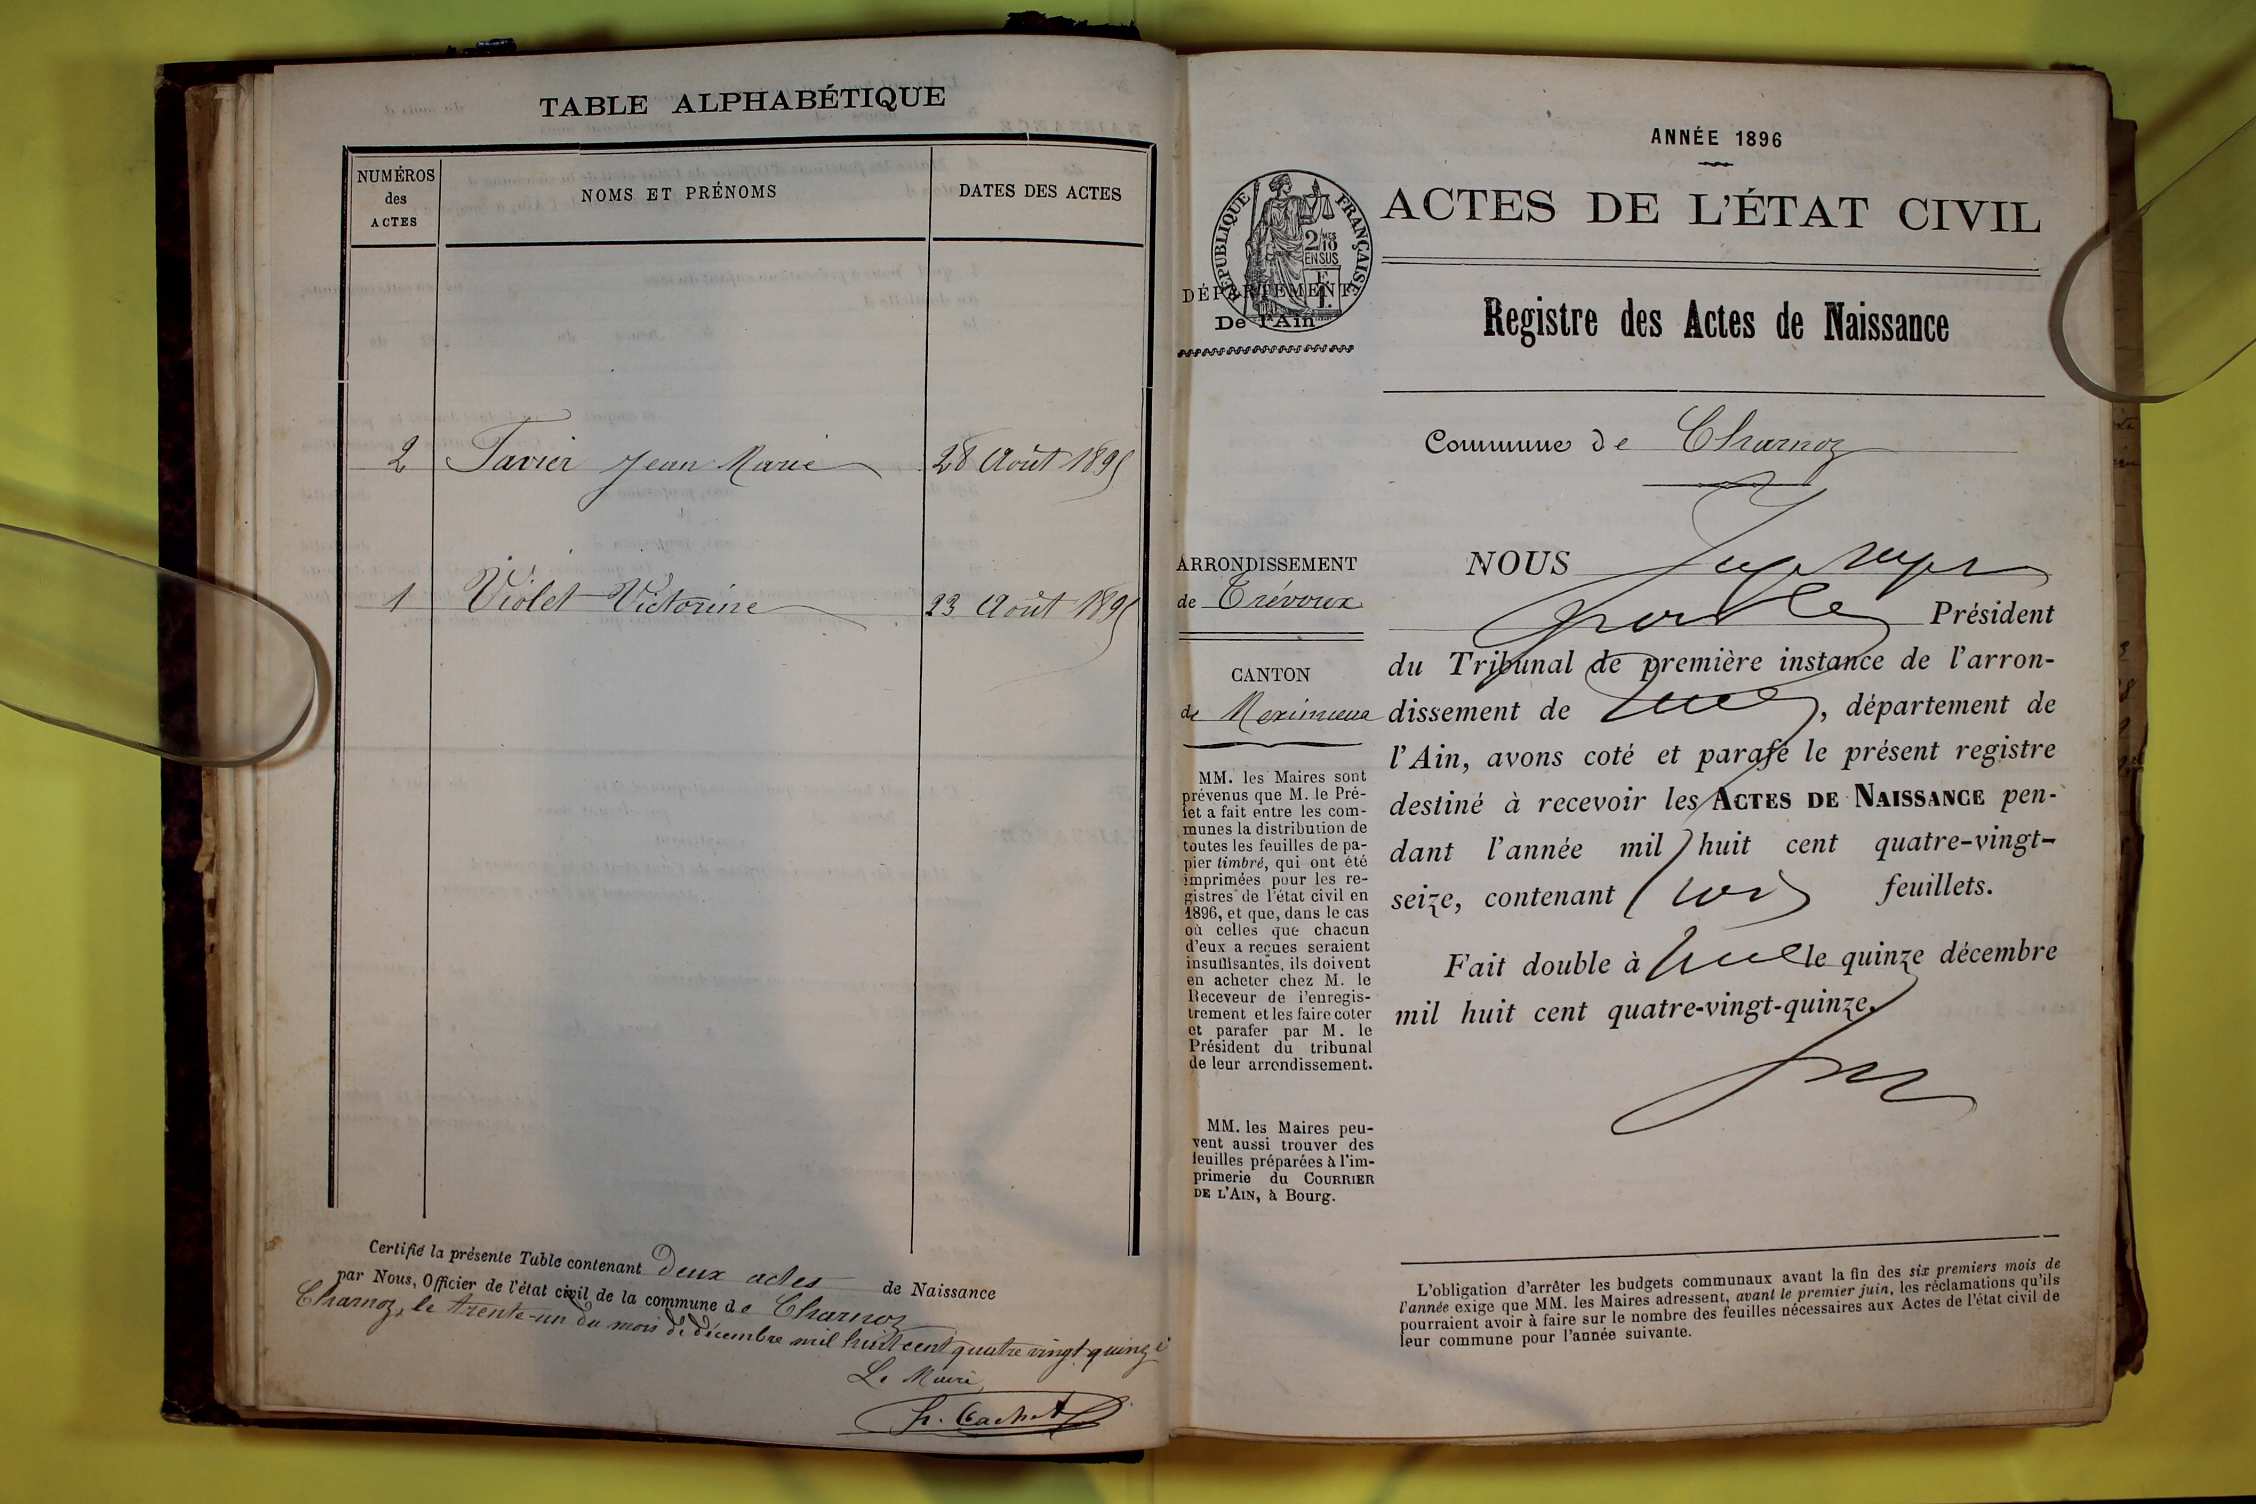 TABLE ALPHABÉTIQUE
NUMÉROS
des
ACTES
NOMS ET PRÉNOMS
DATES DES ACTES
2 Javier Jean Marie 28 Août 1895
1 Violet Victorine 23 Août 1895
Certifié la présente Table contenant deux actes de Naissance
par Nous, Officier de l'état civil de la commune de Charnoz
Charnoz, le trente-un du mois de décembre mil huit cent quatre vingt quinze
Le Maire
ANNÉE 1896
ACTES DE L'ÉTAT CIVIL
RÉPUBLIQUE FRANÇAISE
2/10 MES
EN SUS
DÉPARTEMENT
De l'Ain
Registre des Actes de Naissance
Commune de Charnoz
ARRONDISSEMENT
de Trévoux
CANTON
de Meximieux
MM. les Maires sont
prévenus que M. le Pré-
fet a fait entre les com-
munes la distribution de
toutes les feuilles de pa-
pier timbré, qui ont été
imprimées pour les re-
gistres de l'état civil en
1896, et que, dans le cas
où celles que chacun
d'eux a reçues seraient
insuffisantes, ils doivent
en acheter chez M. le
Receveur de l'enregis-
trement et les faire coter
et parafer par M. le
Président du tribunal
de leur arrondissement.
MM. les Maires peu-
vent aussi trouver des
feuilles préparées à l'im-
primerie du COURRIER
DE L'AIN, à Bourg.
NOUS
Président
du Tribunal de première instance de l'arron-
dissement de , département de
l'Ain, avons coté et parafé le présent registre
destiné à recevoir les ACTES DE NAISSANCE pen-
dant l'année mil huit cent quatre-vingt-
seize, contenant trois feuillets.
Fait double à le quinze décembre
mil huit cent quatre-vingt-quinze.
L'obligation d'arrêter les budgets communaux avant la fin des six premiers mois de
l'année exige que MM. les Maires adressent, avant le premier juin, les réclamations qu'ils
pourraient avoir à faire sur le nombre des feuilles nécessaires aux Actes de l'état civil de
leur commune pour l'année suivante.